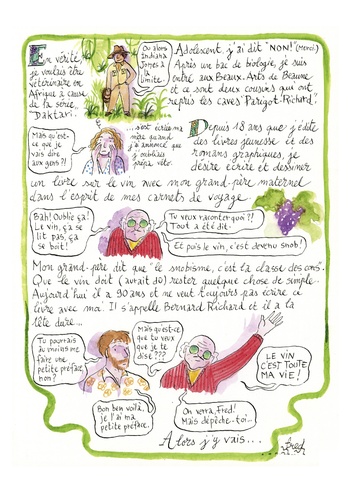 En vérité,
je voulais être
vétérinaire en
Afrique à cause
de la série
"Daktari.
Ou alors
Indiana
Jones à
la limite.
Adolescent, j'ai dit "NON!" (Merci.)
Après un bac de biologie, je suis
entré aux Beaux-Arts de Beaune
et ce sont deux cousins qui ont
repris les caves "Parigot-Richard".
Mais qu'est-
ce que je
vais dire
aux gens?!
...s'est écriée ma
mère quand
j'ai annoncé que
j'oubliais
prépa véto.
Depuis 18 ans que j'édite
des livres jeunesse et des
romans graphiques, je
désire écrire et dessiner
un livre sur le vin avec mon grand-père maternel
dans l'esprit de mes carnets de voyage.
Bah! Oublie ça!
Le vin, ça se
lit pas, ça
se boit!
Tu veux raconter quoi?!
Tout a été dit.
Et puis le vin, c'est devenu snob!
Mon grand-père dit que "le snobisme, c'est la classe des cons".
Que le vin doit (aurait dû) rester quelque chose de simple.
Aujourd'hui il a 90 ans et ne veut toujours pas écrire ce
livre avec moi. Il s'appelle Bernard Richard et il a la
tête dure...
Tu pourrais
au moins me
faire une
petite préface,
non?
Mais qu'est-ce
que tu veux
que je te
dise???
LE VIN
C'EST TOUTE
MA VIE!
Bon ben voilà,
je l'ai ma
petite préface.
On verra, Fred!
Mais dépêche-toi..
Alors j'y vais...
Fred